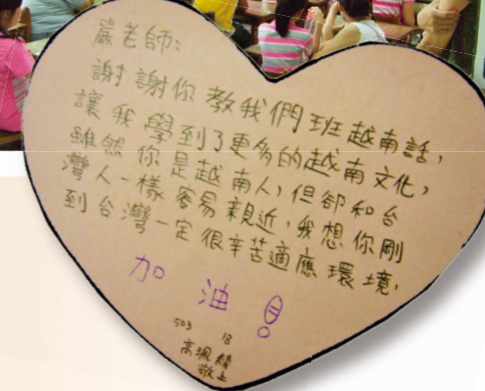 嚴老師：
謝謝你教我們班越南話，
讓我學到了更多的越南文化，
雖然你是越南人，但卻和台
灣人一樣容易親近，我想你剛
到台灣一定很辛苦適應環境，
加油！
503 18
高珮
敬上